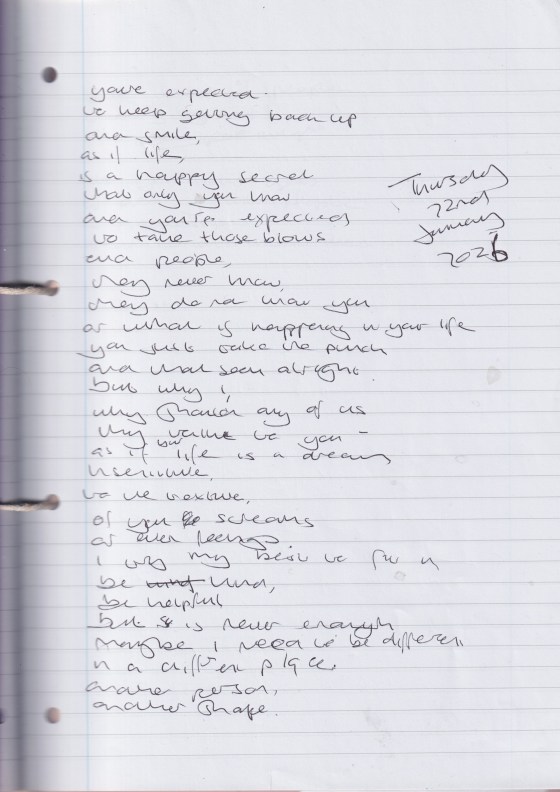 you're expected.
to keep getting back up
and smile,
as if life,
is a happy secret
that only you know
and you're expected
to take those blows
and people,
they never know,
they do not know you
or what is happening in your life
you just take the punch
and that seen alright.
but why,
why should any of us
why value to you -
as if but life is a dream
insensitive,
to the texture,
of your screams
or even feelings
i try my best to fit in
be kind,
be helpful
but it is never enough
maybe i need to be different
in a different place,
another person,
another shape.
Thursday
22nd
January
2026